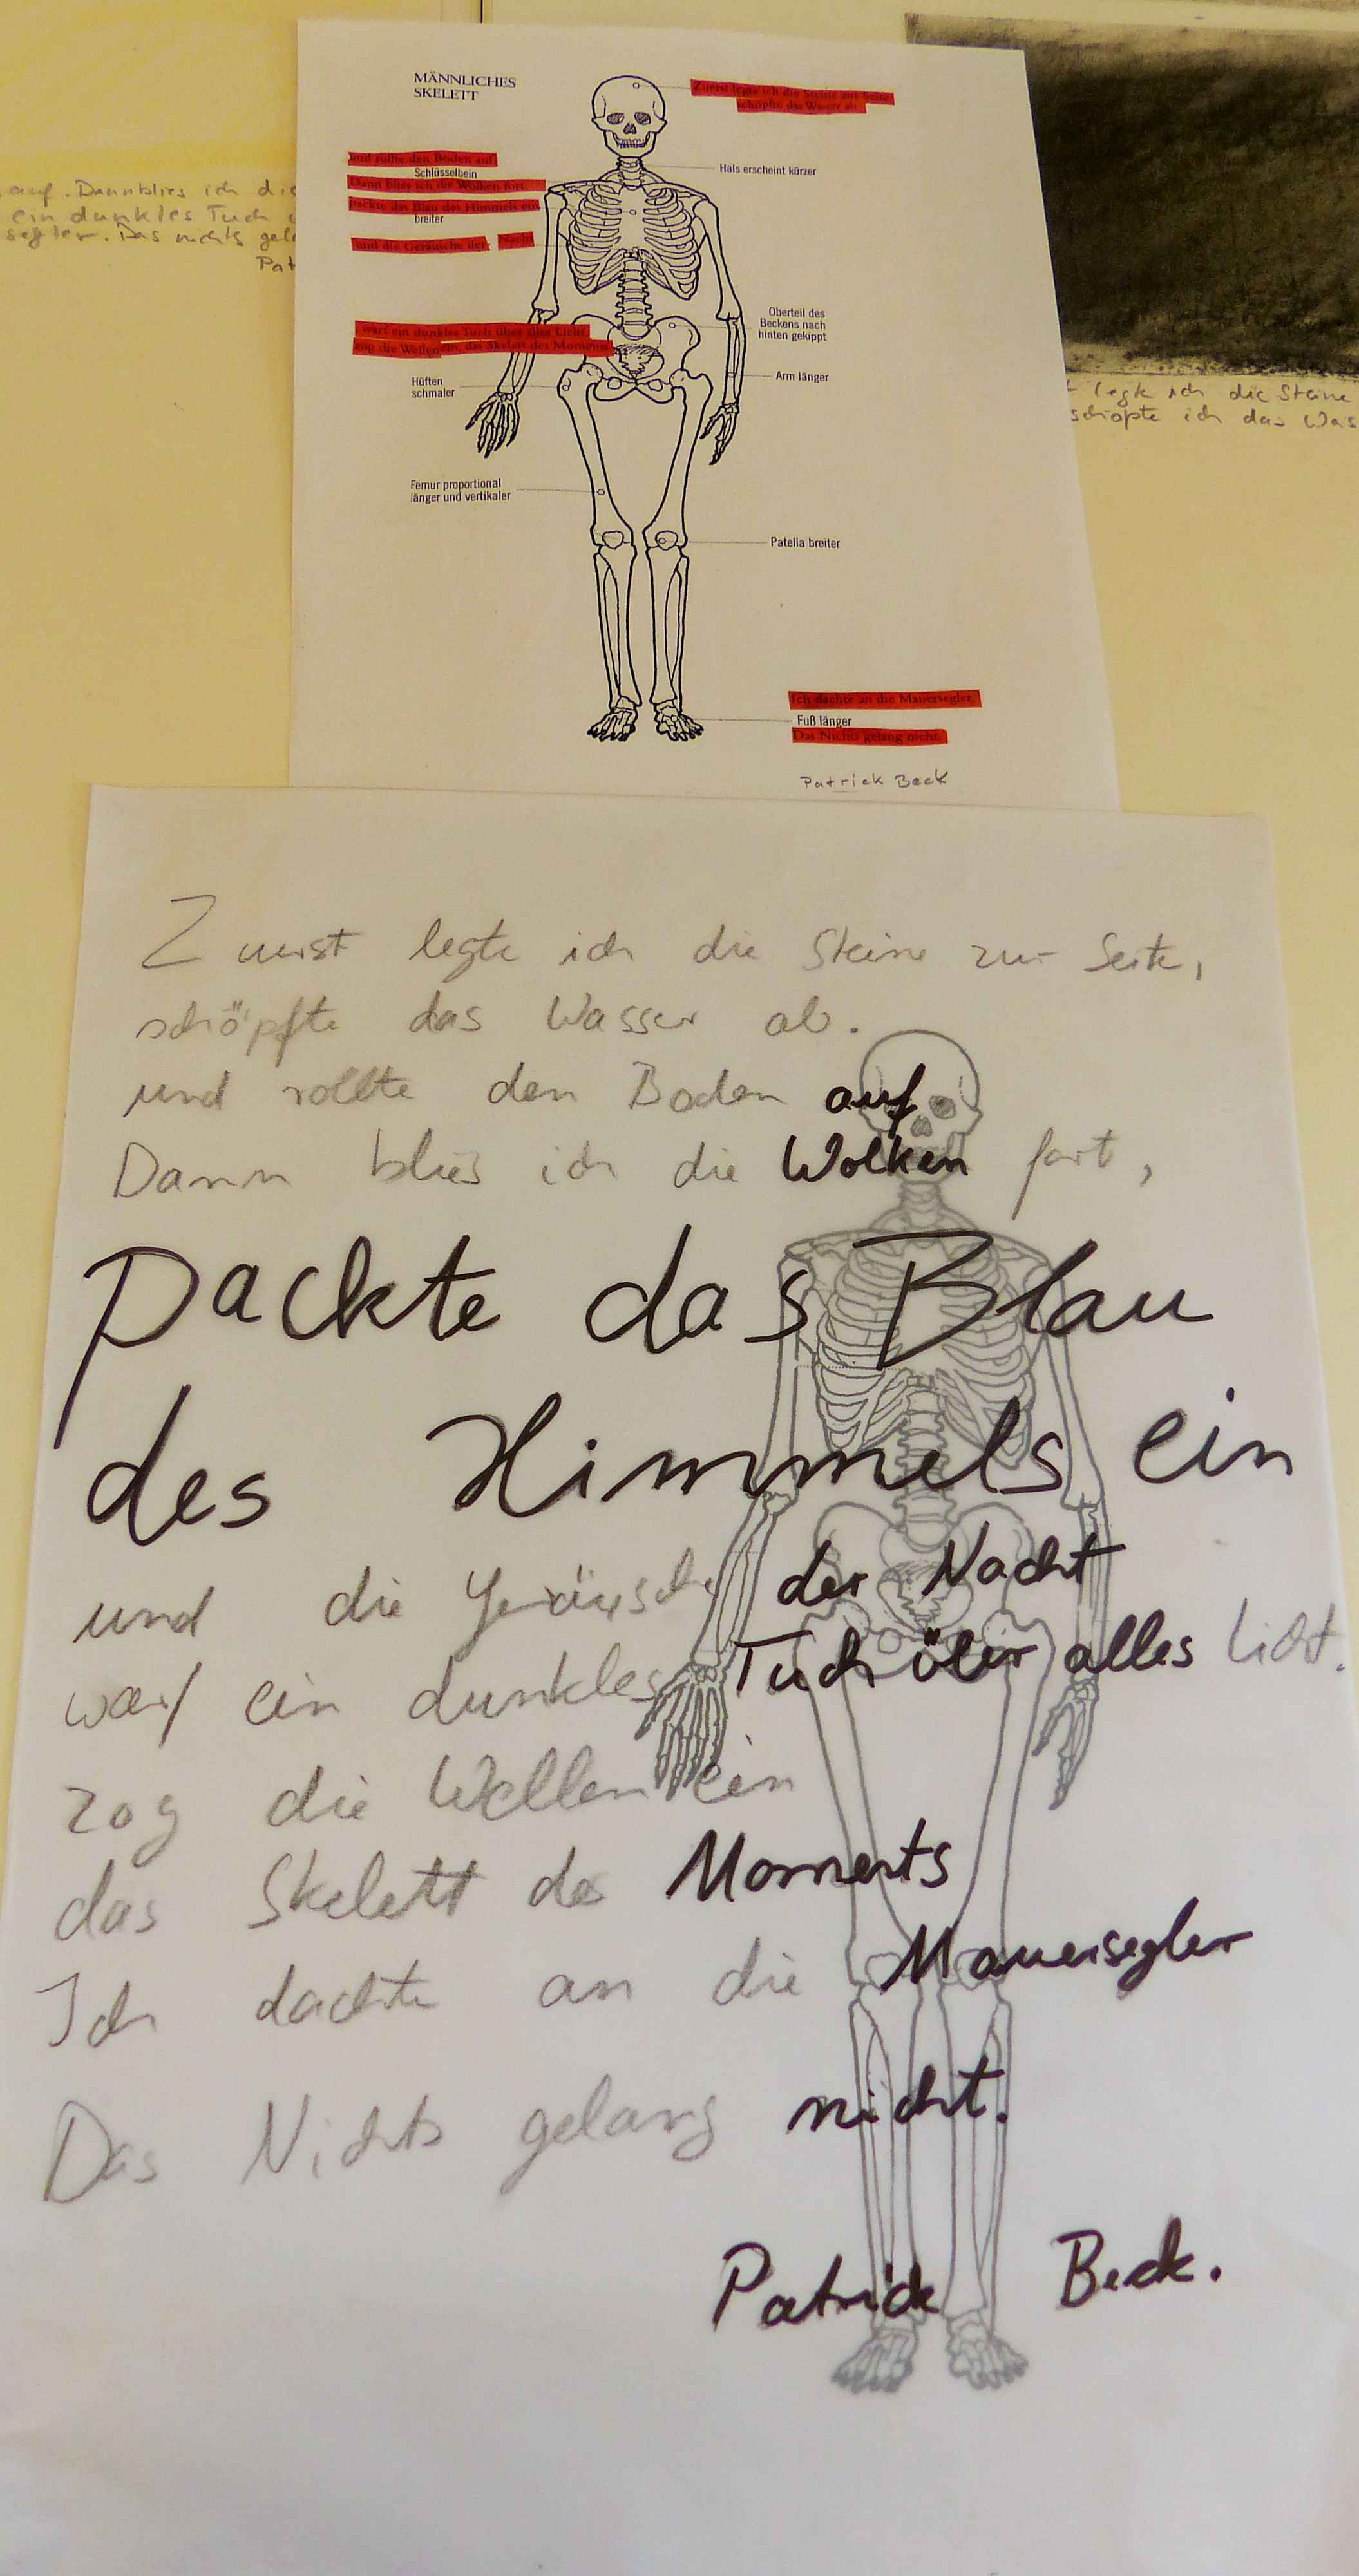 auf. Dann blies ich die
ein dunkles Tuch
segler. Das nichts
Pat
MÄNNLICHES
SKELETT
Zuerst legte ich die Steine zur Seite,
schöpfte das Wasser ab
und rollte den Boden auf.
Schlüsselbein
Dann blies ich die Wolken fort,
packte das Blau des Himmels ein
breiter
und die Geräusche der Nacht
Hals erscheint kürzer
Oberteil des
Beckens nach
hinten gekippt
, warf ein dunkles Tuch über alles Licht,
zog die Wellen ein, das Skelett des Moments
Arm länger
Hüften
schmaler
Femur proportional
länger und vertikaler
Patella breiter
Ich dachte an die Mauersegler.
Fuß länger
Das Nichts gelang nicht.
Patrick Beck
legte ich die Steine
schöpte ich das Was
Zuerst legte ich die Steine zur Seite,
schöpfte das Wasser ab.
und rollte den Boden auf
Dann blies ich die Wolken fort,
packte das Blau
des Himmels ein
und die Geräusche der Nacht
warf ein dunkles Tuch über alles Licht.
zog die Wellen ein
das Skelett des Moments
Ich dachte an die Mauersegler
Das Nichts gelang nicht.
Patrick Beck.